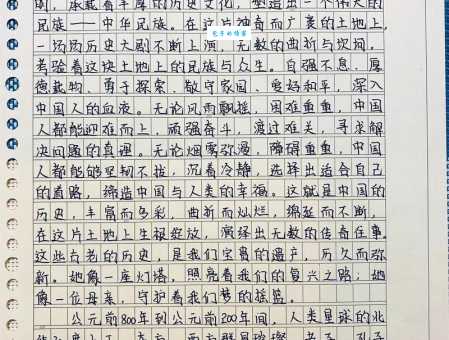 制，承载着丰厚的历史文化，塑造出一个伟大的
民族——中华民族。在这片神奇而广袤的土地上，
一场场历史大剧不断上演，无数的曲折与坎坷，
考验着这块土地上的民族与众生。自强不息、厚
德载物、勇于探索、敬守家国、爱好和平，深入
中国人的血液。无论风雨飘摇，困难重重，中国
人都能迎难而上，顽强奋斗，渡过难关，寻求解
决问题的真理。无论烟雾弥漫，障碍重重，中国
人都能够坚韧不拔，沉着冷静，选择出适合自己
的道路，缔造中国与人类的幸福。这就是中国的
历史，丰富而多彩，曲折而灿烂，绵延而不断，
在这片土地上生根绽放，演绎出无数的传奇往事。
这些古老的历史，是我们宝贵的遗产，历久而弥
新。她像一座灯塔，照亮着我们的复兴之路；她
像一位母亲，守护着我们梦的摇篮。
公元前800年到公元前200年间，人类星球的北